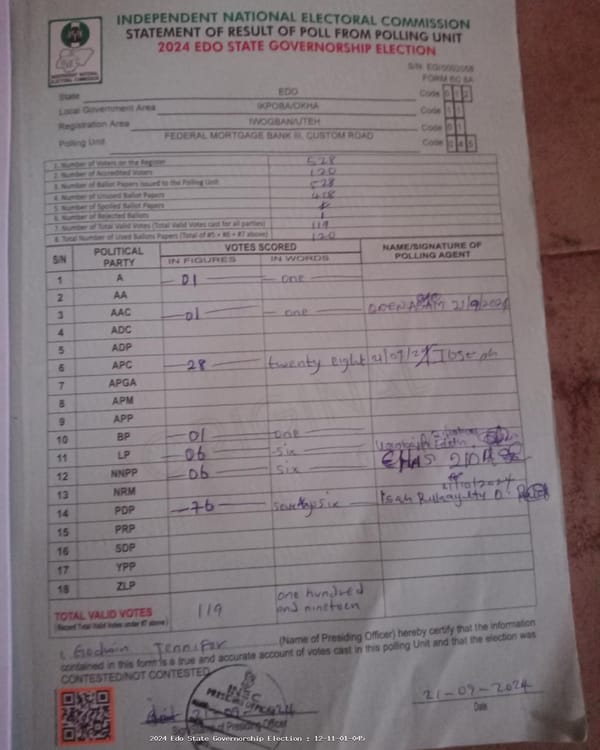 INDEPENDENT NATIONAL ELECTORAL COMMISSION
STATEMENT OF RESULT OF POLL FROM POLLING UNIT
2024 EDO STATE GOVERNORSHIP ELECTION
INDEPENDENT NATIONAL ELECTORAL COMMISSION
FORM EC 8A
State EDO Code 0 1 2
Local Government Area IKPOBA/OKHA Code 1 1
Registration Area IWOGBAN/UTEH Code 0 1
Polling Unit FEDERAL MORTGAGE BANK III, CUSTOM ROAD Code 0 4 5
1. Number of Voters on the Register 528
2. Number of Accredited Voters 120
3. Number of Ballot Papers Issued to the Polling Unit 528
4. Number of Unused Ballot Papers 408
5. Number of Spoiled Ballot Papers
6. Number of Rejected Ballots 1
7. Number of Total Valid Votes (Total Valid Votes cast for all parties) 119
8. Total Number of Used Ballots Papers (Total of #5 + #6 + #7 above) 120
S/N POLITICAL PARTY VOTES SCORED NAME/SIGNATURE OF POLLING AGENT
IN FIGURES IN WORDS
1 A 01 one
2 AA
3 AAC 01 one 21/9/2024
4 ADC
5 ADP
6 APC 28 twenty eight 21/09/24
7 APGA
8 APM
9 APP
10 BP 01 one
11 LP 06 six
12 NNPP 06 six
13 NRM
14 PDP 76 seventy six
15 PRP
16 SDP
17 YPP
18 ZLP
TOTAL VALID VOTES 119 one hundred and nineteen
(Record Total Valid Votes under #7 above)
I, Godwin Jennifer (Name of Presiding Officer) hereby certify that the information
contained in this form is a true and accurate account of votes cast in this polling Unit and that the election was
CONTESTED/NOT CONTESTED
21-09-2024
Date
of Presiding Officer
2024 Edo State Governorship Election : 12-11-01-045